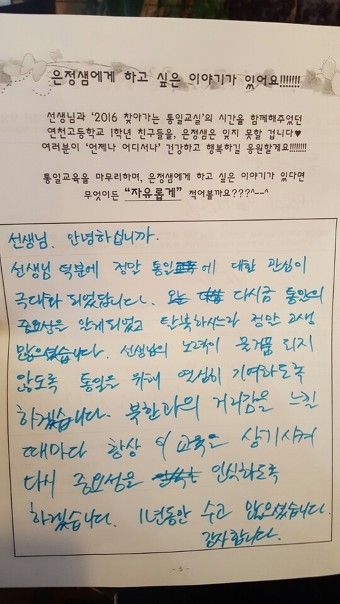 은정샘에게 하고 싶은 이야기가 있어요!!!!!!!
선생님과 '2016 찾아가는 통일교실'의 시간을 함께해주었던
연천고등학교 1학년 친구들을, 은정샘은 잊지 못할 겁니다♥
여러분이 '언제나 어디서나' 건강하고 행복하길 응원할게요!!!!!!!!
통일교육을 마무리하며, 은정샘에게 하고 싶은 이야기가 있다면
무엇이든 "자유롭게" 적어볼까요???^--^
선생님. 안녕하십니까.
선생님 덕분에 정말 통일에 대한 관심이
극대화 되었답니다. 다시금 통일의
중요성을 알게되었고 탈북하시느라 정말 고생
많으셨습니다. 선생님의 노력이 물거품 되지
않도록 통일을 위해 열심히 기여하도록
하겠습니다. 북한과의 거리감을 느낄
때마다 항상 이 교육을 상기시켜
다시 중요성을 인식하도록
하겠습니다. 1년동안 수고 많으셨습니다.
감사합니다.
- 5 -